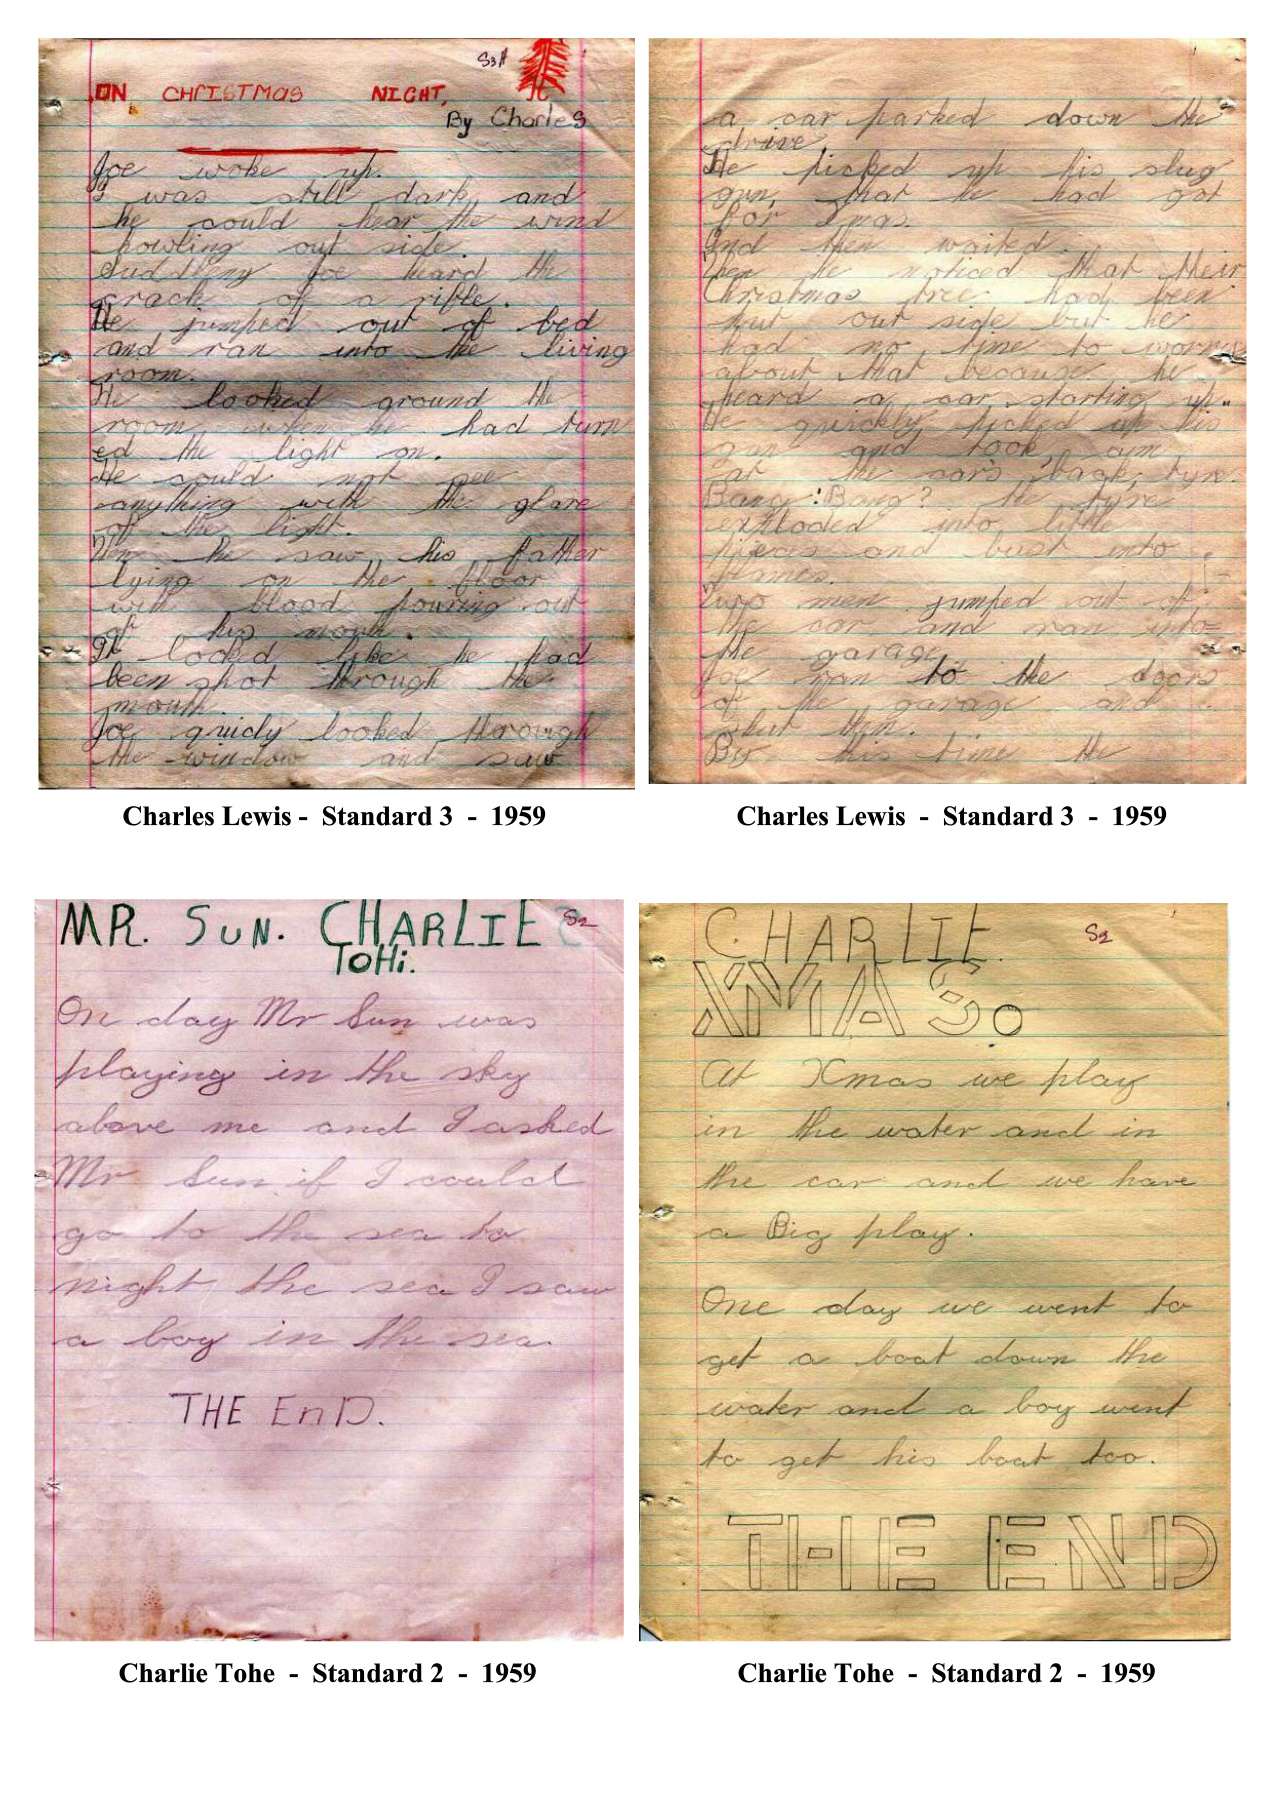 S3A
ON CHRISTMAS NIGHT,
By Charles
Joe woke up.
I was still dark, and
he could hear the wind
howling out side.
Suddleny Joe heard the
crack of a rifle.
He jumped out of bed
and ran into the living
room.
He looked ground the
room when he had turn
ed the light on.
He could not see
anything with the glare
of the light.
Then he saw his father
lying on the floor
with blood pouring out
of his mouth.
It looked like he had
been shot through the
mouth.
Joe quicly looked through
the window and saw
a car parked down the
drive,
He picked up his slug
gun, that he had got
for Xmas.
And then waited.
Then he noticed that their
Christmas tree had been
put out side but he
had no time to worry
about that because he
heard a car starting up..
He quickly picked up his
gun and took aim
at the cars back tyre.
Bang! Bang? the tyre
exploded into little
pieces and bust into
flames.
Two men jumped out of
the car and ran into
the garage.
Joe ran to the doors
of the garage and
shut them.
By this time the
Charles Lewis - Standard 3 - 1959
Charles Lewis - Standard 3 - 1959
MR. SUN. CHARLIE S2
ToHi.
On day Mr Sun was
playing in the sky
above me and I asked
Mr Sun if I could
go to the sea to
night the sea I saw
a boy in the sea.
THE EnD.
CHARLIE. S2
XMAS.
At Xmas we play
in the water and in
the car and we have
a Big play.
One day we went to
get a boat down the
water and a boy went
to get his boat too.
THE END
Charlie Tohe - Standard 2 - 1959
Charlie Tohe - Standard 2 - 1959